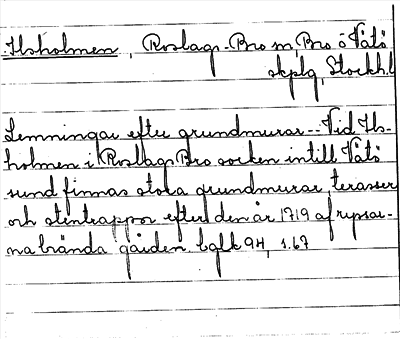 Ilsholmen, Roslags-Bro sn, Bro o Vätö
skplg, Stockh.l
Lemningar efter grundmurar.-- Vid Ils-
holmen i Roslags Bro socken intill Vätö
sund finnas stora grundmurar, terasser
och stentrappor efter den år 1719 af ryssar-
na brända gården. bglk 94, s.67